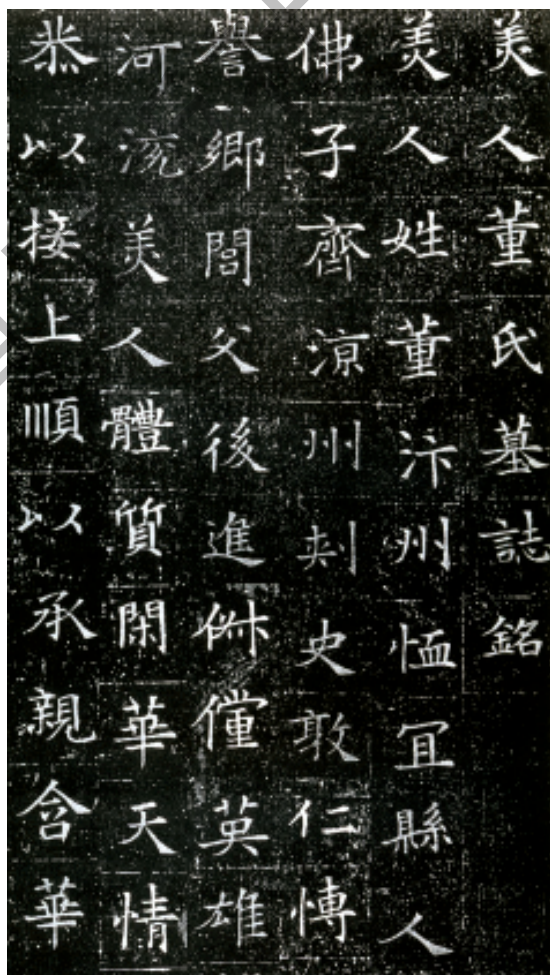 美人董氏墓誌銘
美人姓董汴州恤冝縣人
佛子齊涼州刾史敦仁愽
譽鄉閭父後進俶儻英雄
河流美人體質閑華天情
恭以接上順以承親含華